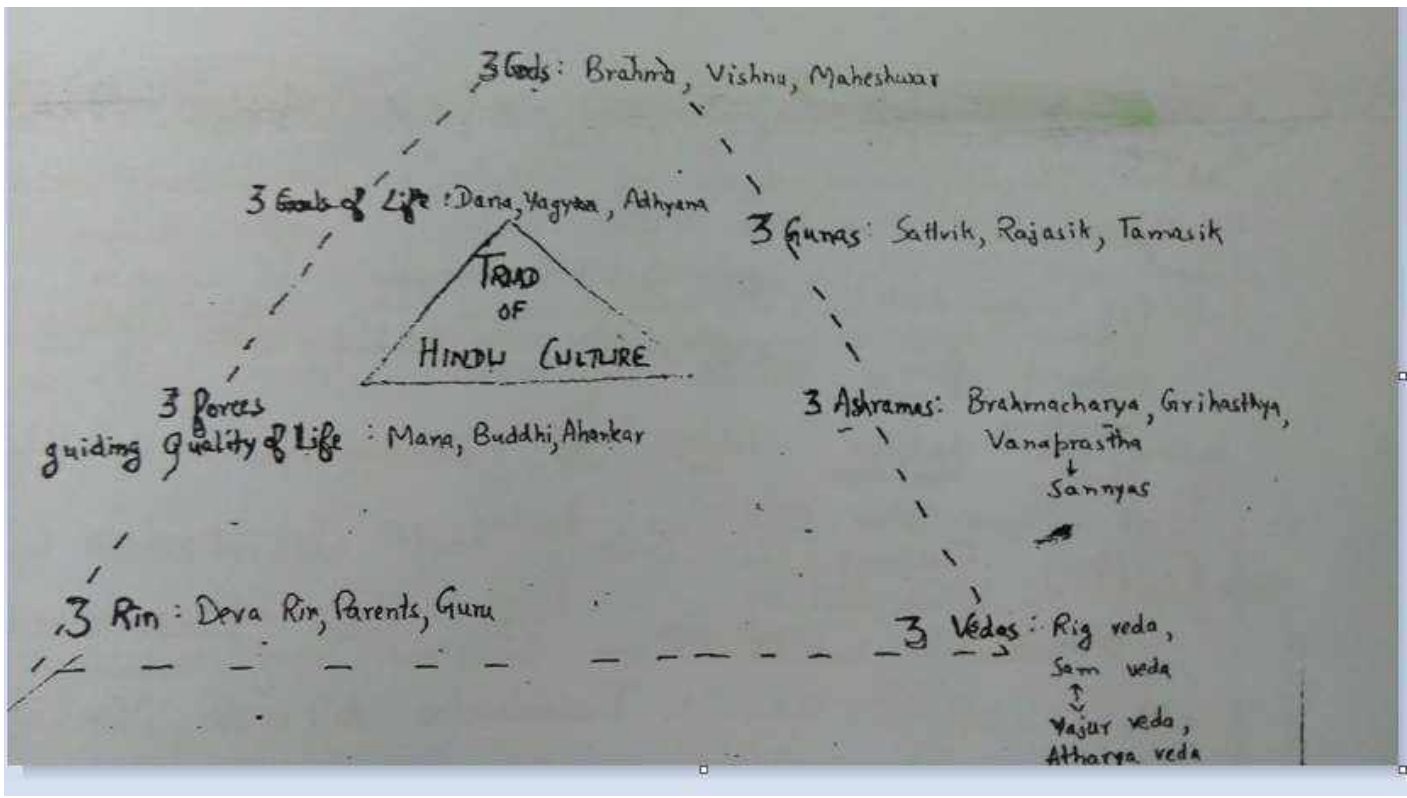 3 Gods: Brahma, Vishnu, Maheshwar
3 Goals of Life: Dana, Yagya, Adhyana
3 Gunas: Sattvik, Rajasik, Tamasik
TRIAD
OF
HINDU CULTURE
3 Forces
guiding Quality of Life : Mana, Buddhi, Ahankar
3 Ashramas: Brahmacharya, Grihasthya,
Vanaprastha
Sannyas
3 Rin: Deva Rin, Parents, Guru
3 Vedas: Rig veda,
Sam veda
Yajur veda,
Atharva veda